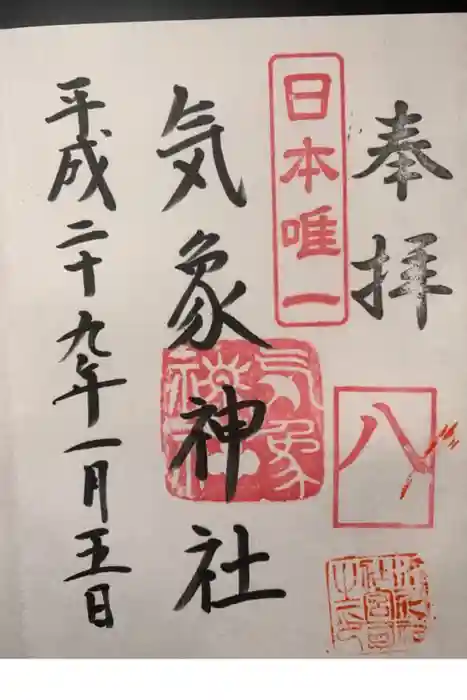 奉拝
八
日本唯一
気象神社
気象神社
平成二十九年一月五日